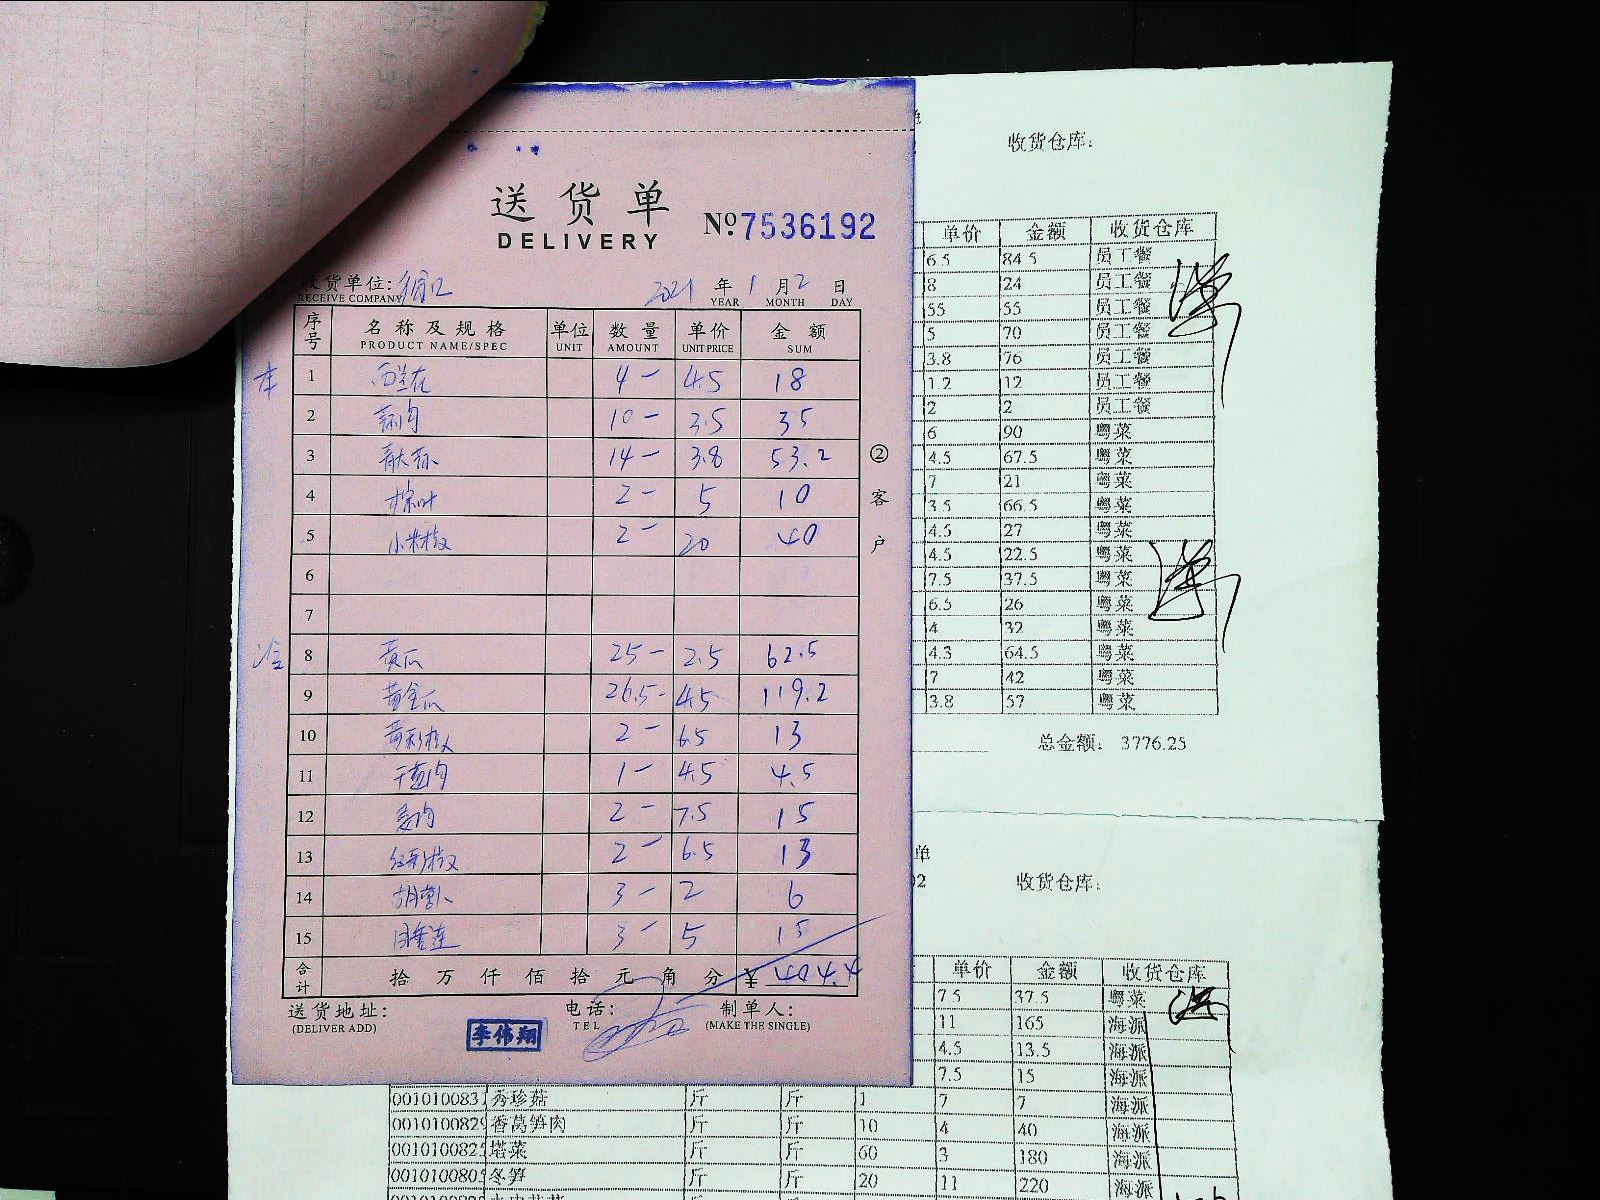 送货单
DELIVERY
№ 7536192
收货单位:
RECEIVE COMPANY
2021 年 1 月 2 日
YEAR MONTH DAY
序号 名称及规格 单位 数量 单价 金额
PRODUCT NAME/SPEC UNIT AMOUNT UNIT PRICE SUM
1 西兰花 4- 4.5 18
2 10- 3.5 35
3 14- 3.8 53.2
4 粽叶 2- 5 10
5 小米椒 2- 20 40
6
7
8 黄瓜 25- 2.5 62.5
9 黄金瓜 26.5- 4.5 119.2
10 黄彩椒 2- 6.5 13
11 1- 4.5 4.5
12 姜肉 2- 7.5 15
13 红彩椒 2- 6.5 13
14 胡萝卜 3- 2 6
15 3- 5 15
合计 拾万仟佰拾元角分 ¥ 404.4
②客户
送货地址:
(DELIVER ADD)
电话:
TEL
制单人:
(MAKE THE SINGLE)
李伟翔
收货仓库:
单价 金额 收货仓库
6.5 84.5 员工餐
8 24 员工餐
55 55 员工餐
5 70 员工餐
3.8 76 员工餐
1.2 12 员工餐
2 2 员工餐
6 90 粤菜
4.5 67.5 粤菜
7 21 粤菜
3.5 66.5 粤菜
4.5 27 粤菜
4.5 22.5 粤菜
7.5 37.5 粤菜
6.5 26 粤菜
4 32 粤菜
4.3 64.5 粤菜
7 42 粤菜
3.8 57 粤菜
总金额: 3776.25
单
02 收货仓库:
单价 金额 收货仓库
7.5 37.5 粤菜
11 165 海派
4.5 13.5 海派
7.5 15 海派
0010100831 秀珍菇 斤 斤 1 7 7 海派
0010100829 香莴笋肉 斤 斤 10 4 40 海派
0010100825 塔菜 斤 斤 60 3 180 海派
0010100805 冬笋 斤 斤 20 11 220 海派